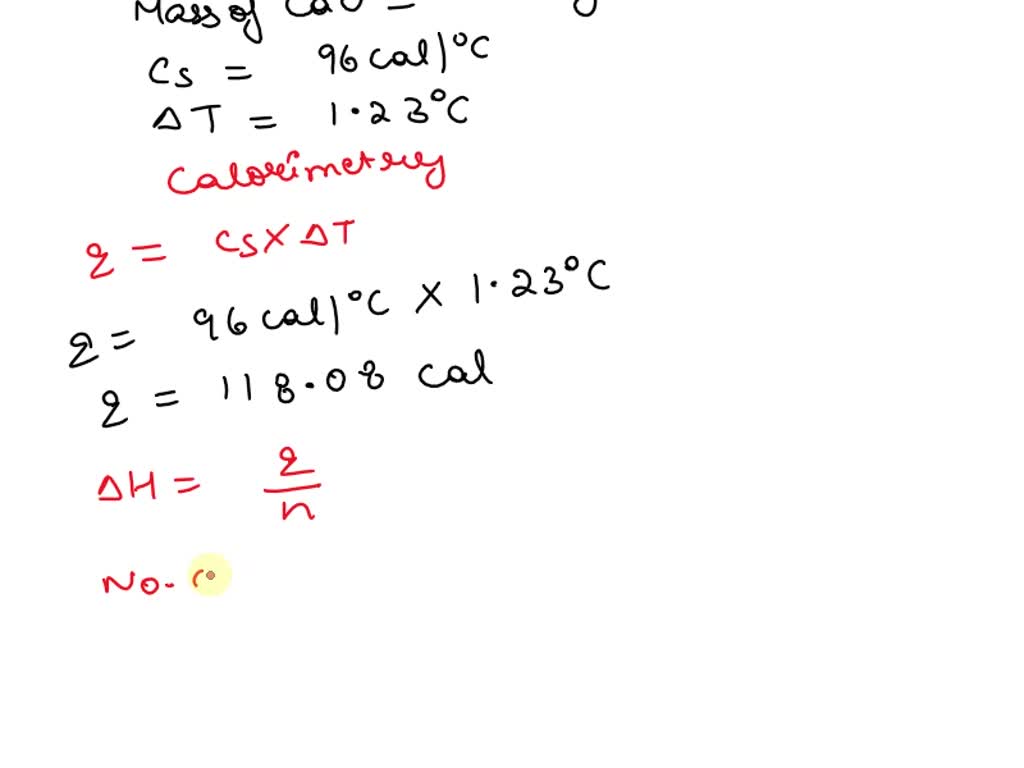 Mass of CaO =
Cs = 96 cal/°C
ΔT = 1.23°C
Calorimetry
q = Cs × ΔT
q = 96 cal/°C × 1.23°C
q = 118.08 cal
ΔH = q/n
No.